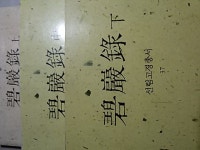 碧巖錄 上
碧巖錄 中
碧巖錄 下
선림고경총서
37